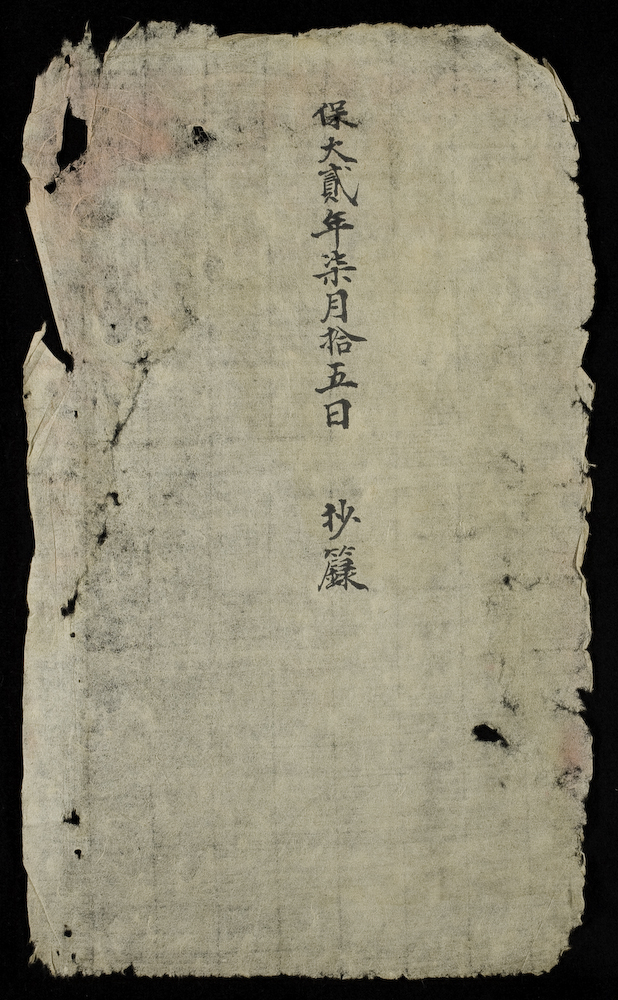 保大貳年柒月拾五日 抄籙